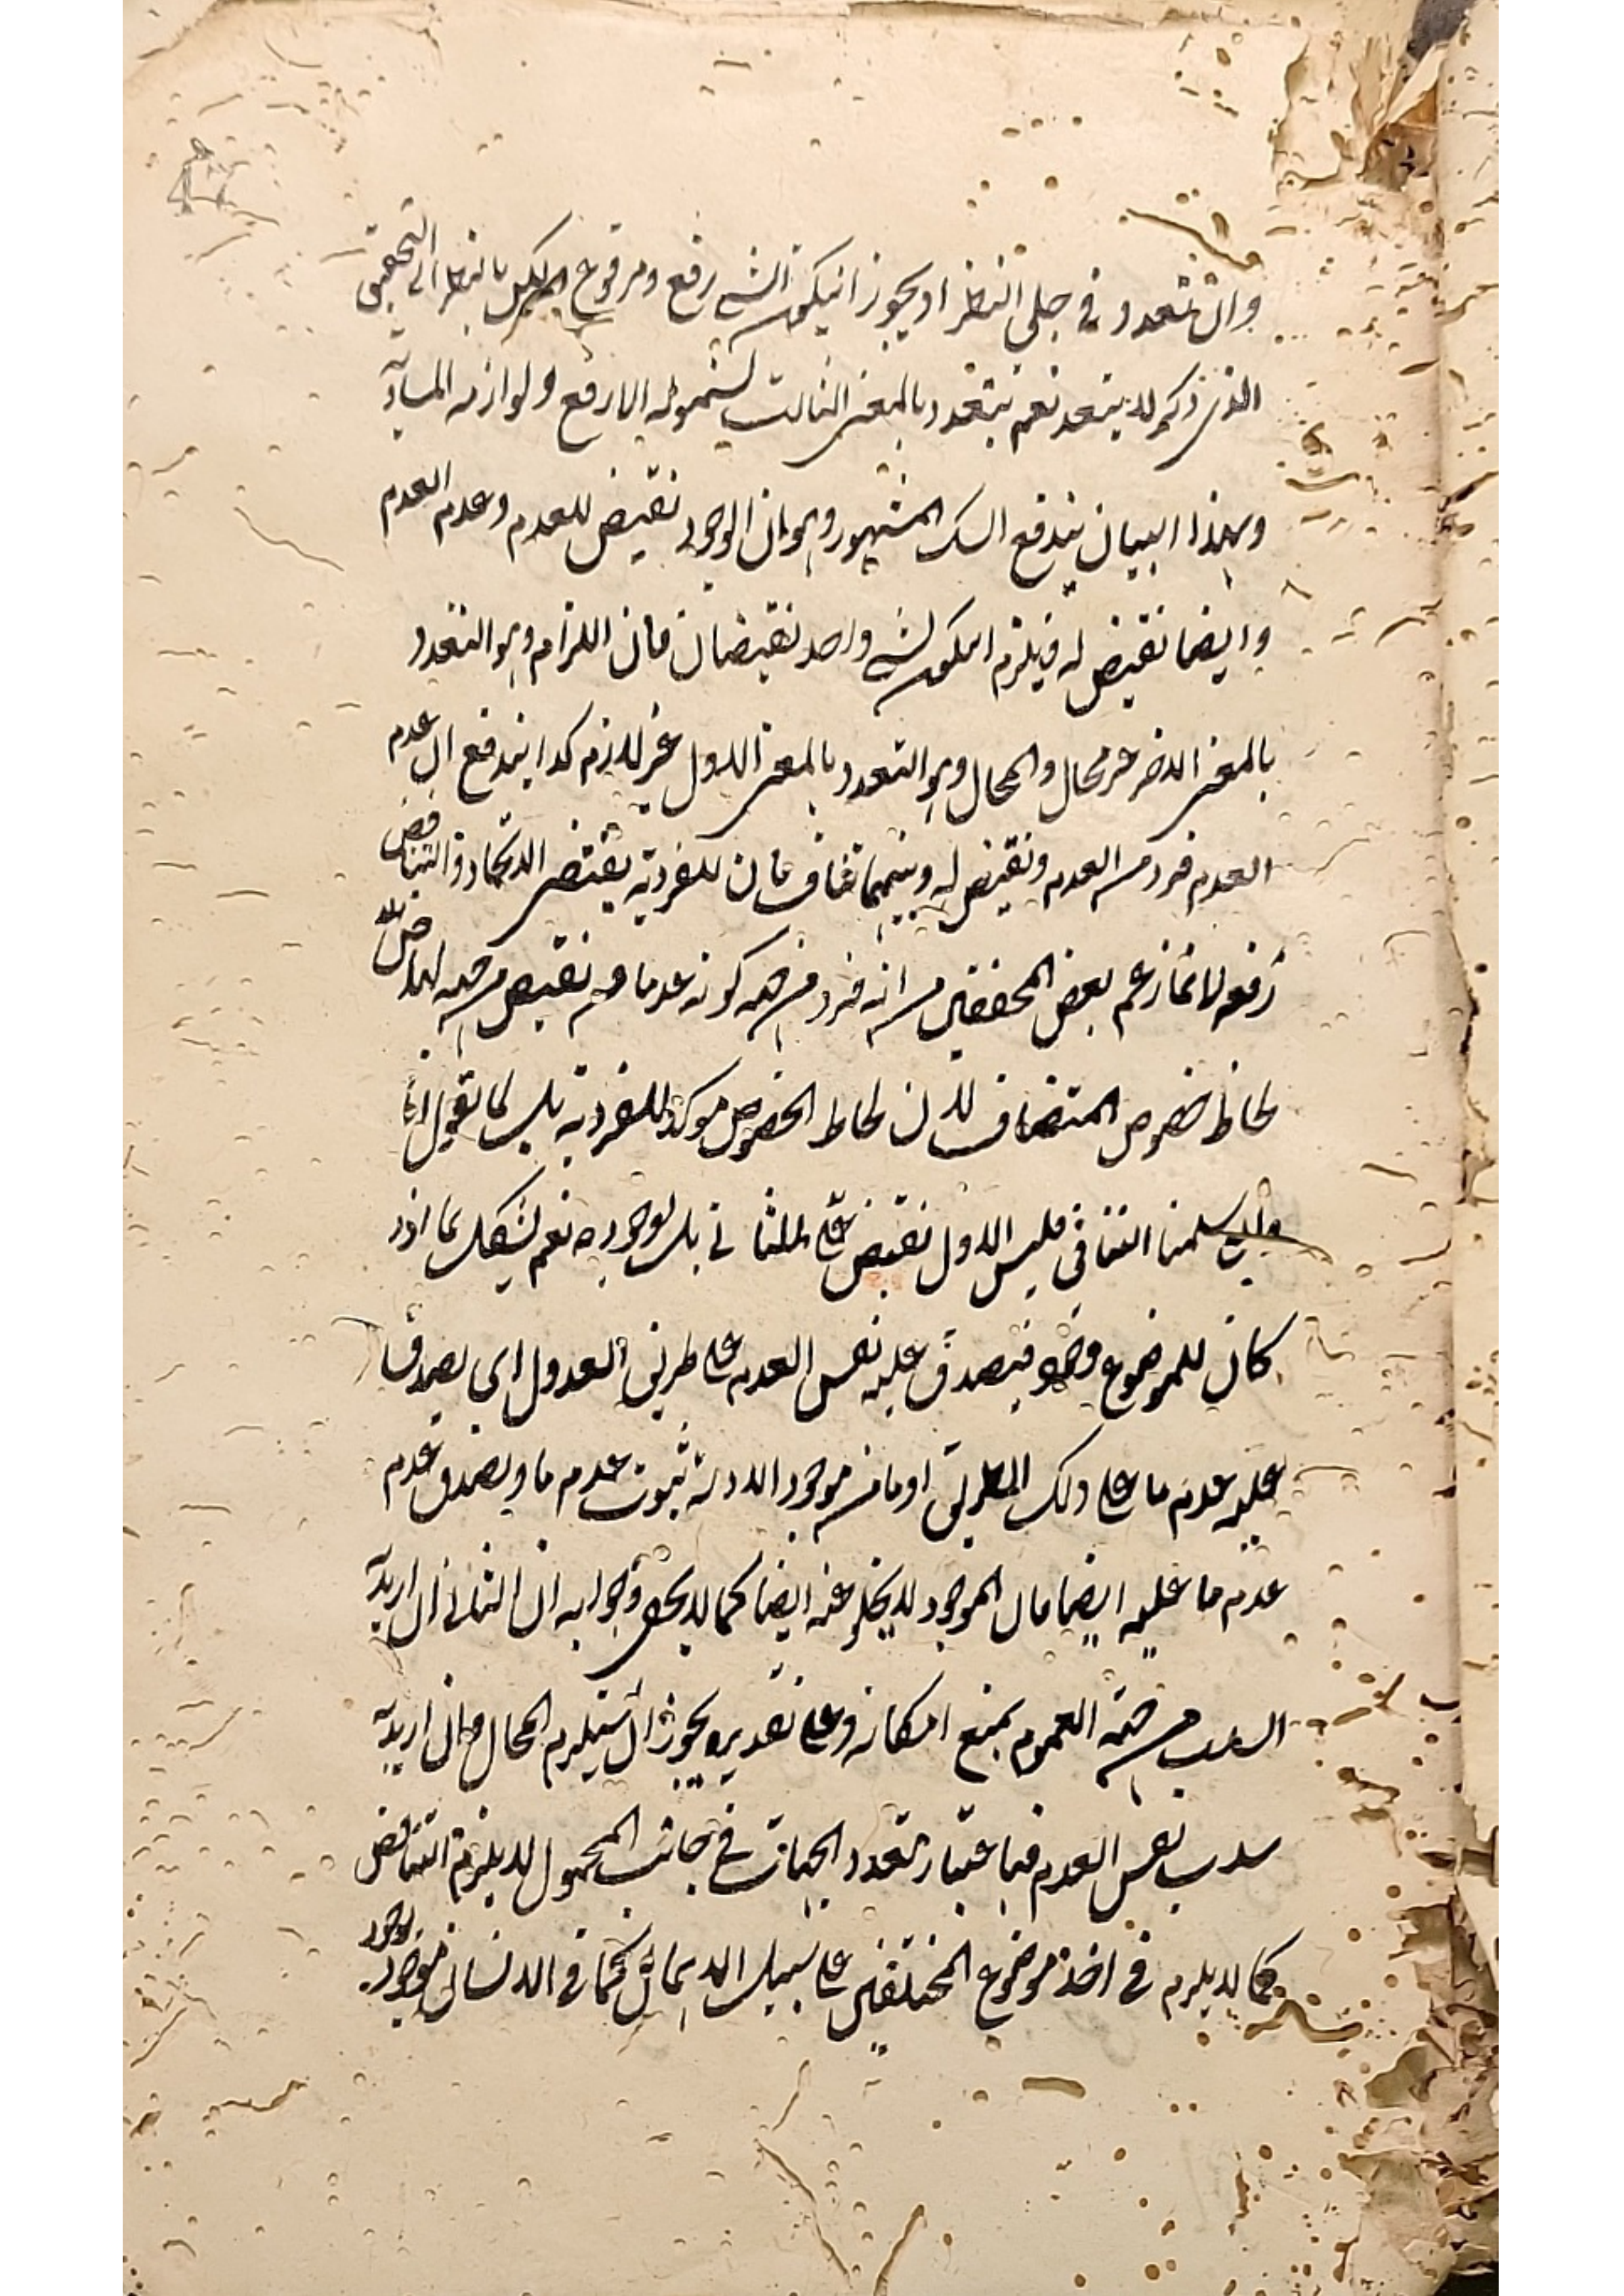 وان تعدد في جلي النظر اذ يجوز ان يكون الشئ رفع ومرفوع لكن بالنظر الى التحقيق
الذي ذكر لا يتعدد نعم يتعدد بالمعنى الثالث لشموله الرفع ولوازمه المساوية
وبهذا البيان يندفع الشك المشهور وهو ان الوجود نقيض للعدم وعدم العدم
وايضا نقيض له فيلزم ان يكون لشئ واحد نقيضان فان اللازم وهو التعدد
بالمعنى الاخر غير محال والمحال وهو التعدد بالمعنى الاول غير لازم كذا يندفع ان عدم
العدم فرد من العدم ونقيض له وبينهما تناف فان الفردية يقتضي الاتحاد والتناقض
رفعه لا بما زعم بعض المحققين من انه فرد من جهة كونه عدما ونقيض من جهة
لحاظ خصوص المتضاف لان لحاظ الخصوص موكد للفردية بل لما نقول
سلمنا التنافي فليس الاول نقيض للثاني بل لوجوده نعم يشكل بما اذا
كان للموضوع وجود فيصدق عليه نفس العدم على طريق العدول اي يصدق
عليه عدم ما على ذلك الطريق او ما من موجود الا وله ثبوت عدم ما ويصدق عدم
عدم ما عليه ايضا فان الموجود لا يخلو عنه ايضا كما لا يخفى وجوابه ان الثاني ان اريد به
السلب من جهة العموم يمنع امكانه وعلى تقديره يجوز ان يستلزم المحال وان اريد به
سلب نفس العدم فباعتبار تعدد الجهات في جانب المحمول لا يلزم التناقض
كما لا يلزم في اخذ موضوع المختلفين على سبيل الاهمال كما في الانسان موجود